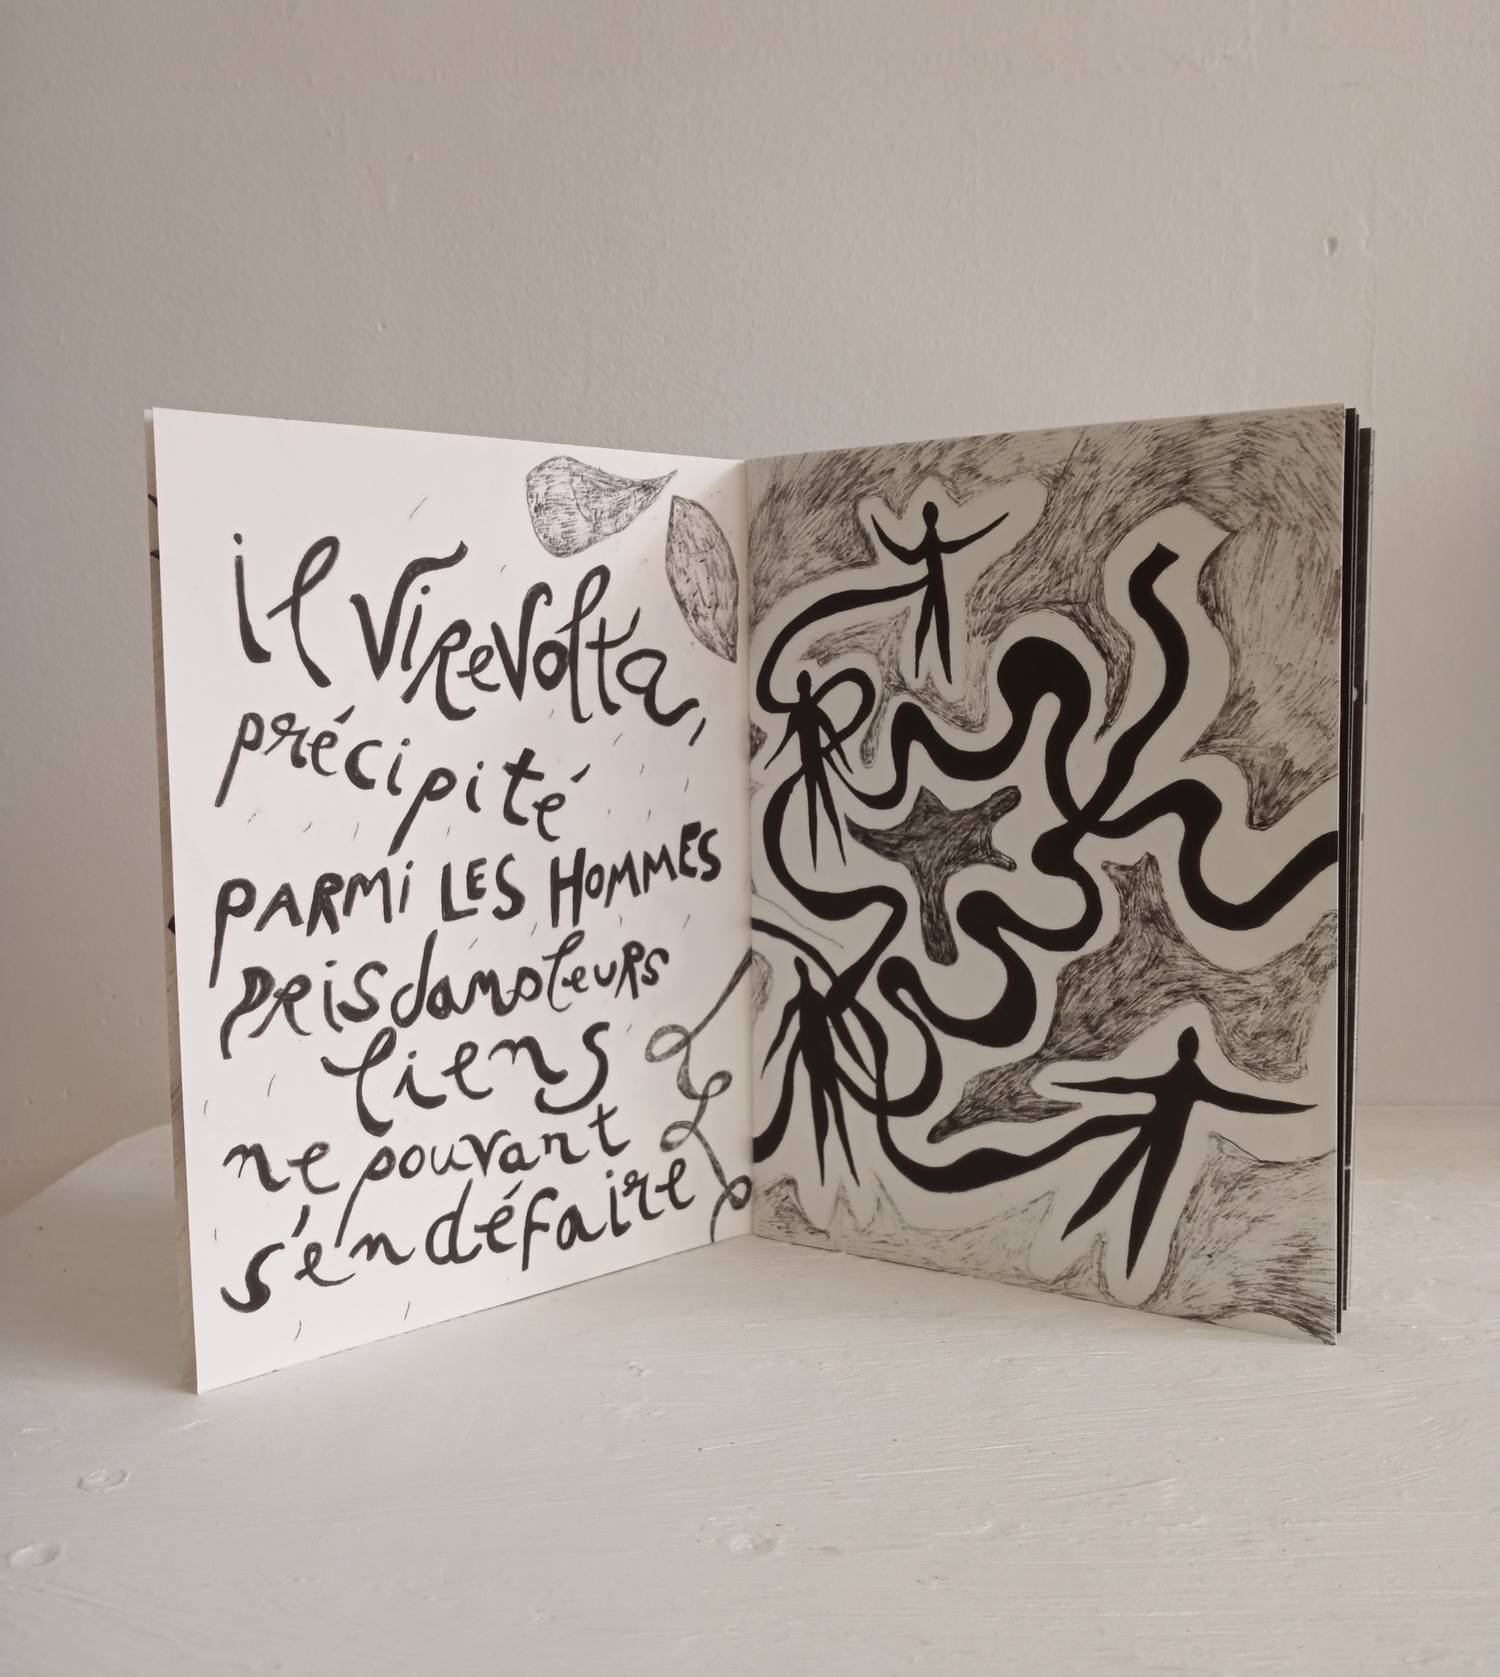 il virevolta,
précipité
PARMI LES HOMMES
pris dans leurs
liens
ne pouvant
s'en défaire